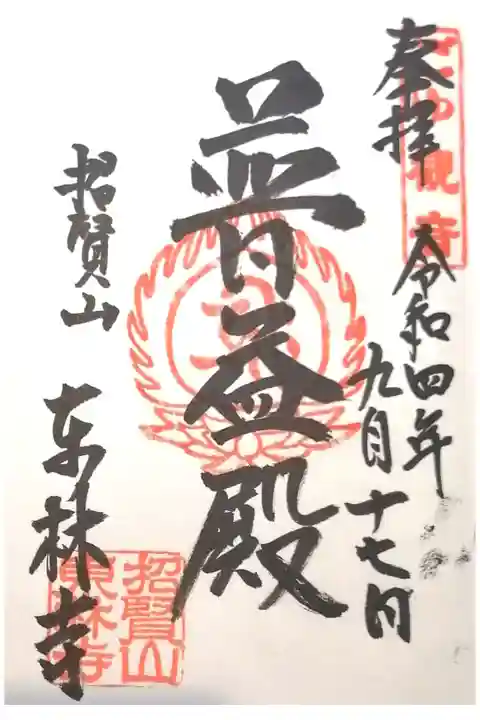 奉拝
令和四年
九月十七日
普益殿
招賢山
東林寺
観音
招賢山
東林寺